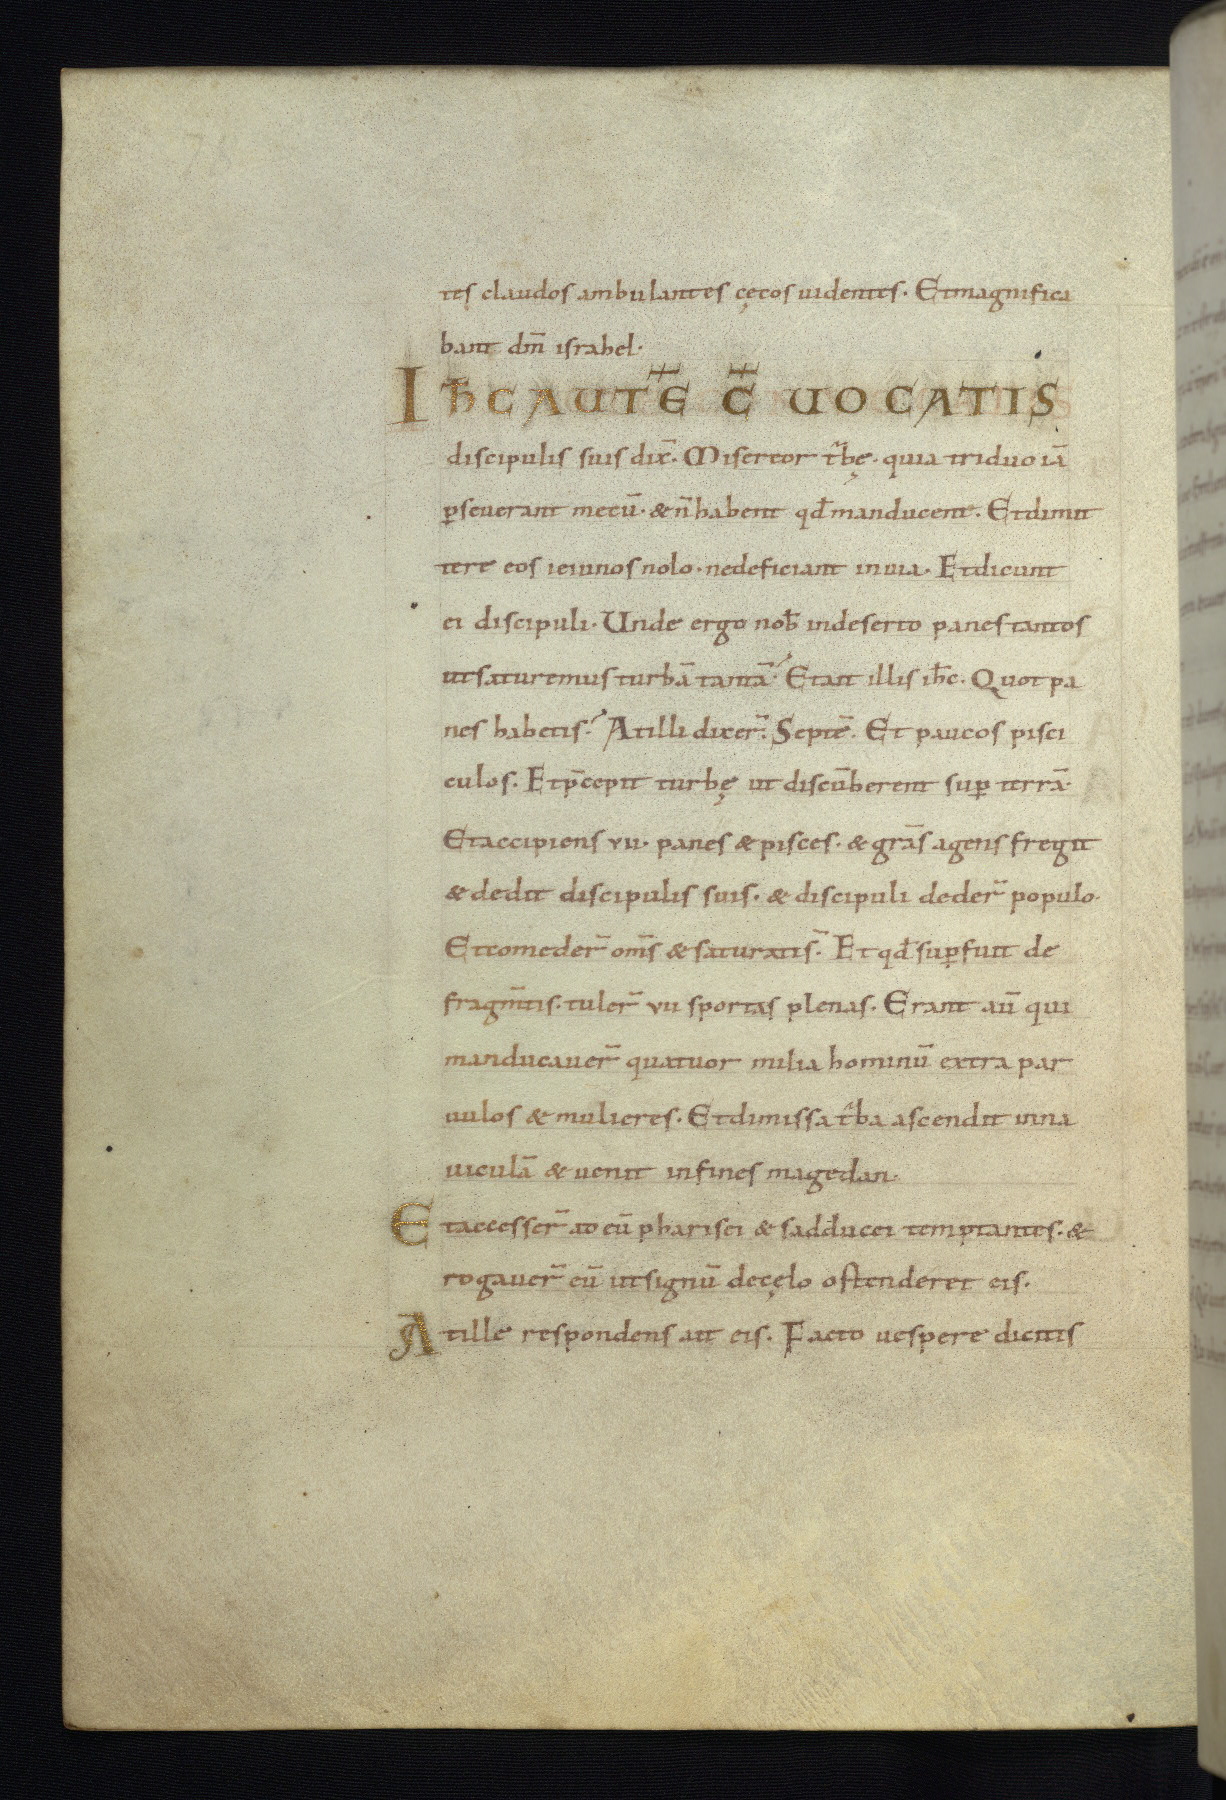 tes claudos ambulantes cęcos uidentes. Et magnifica
bant dm̄ israhel.
IH̄C AUTĒ C̄ UOCATIS
discipulis suis dix̄. Misereor t̄bę. quia triduo iā
ꝑseuerant mecū. & n̄ habent qđ manducent. Et dimit
tere eos ieiunos nolo. ne deficiant in uia. Et dicunt
ei discipuli. Unde ergo nob̄ in deserto panes tantos
ut saturemus turbā tantā? Et ait illis ih̄c. Quot pa
nes habetis? At illi dixer̄. Septē. Et paucos pisci
culos. Et p̄cepit turbę ut discūberent suꝑ terrā.
Et accipiens vii. panes & pisces. & grās agens fregit
& dedit discipulis suis. & discipuli deder̄ populo.
Et comeder̄ om̄s & saturati s̄. Et qđ suꝑfuit de
fragm̄tis. tuler̄ vii sportas plenas. Erant aū qui
manducauer̄ quatuor milia hominū extra par
uulos & mulieres. Et dimissa t̄ba ascendit in na
uiculā & uenit in fines magedan.
Et accesser̄ ad eū pharisei & sadducei temptantes. &
rogauer̄ eū ut signū de cęlo ostenderet eis.
At ille respondens ait eis. Facto uespere dicitis